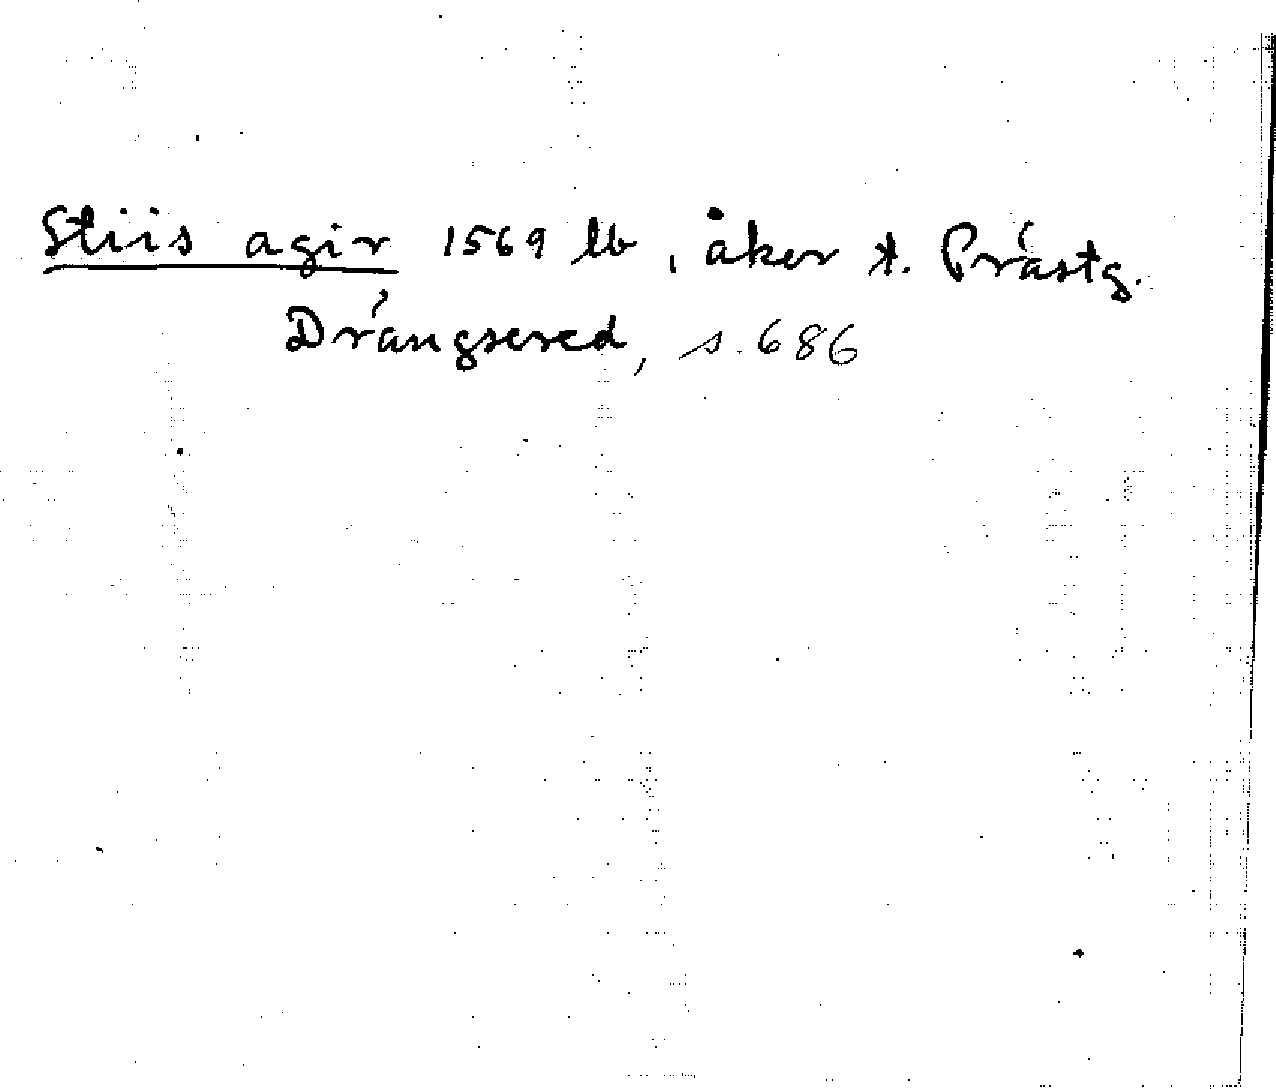 Stiis agir 1569 lb, åker t. Prästg.
Drängsered, s. 686